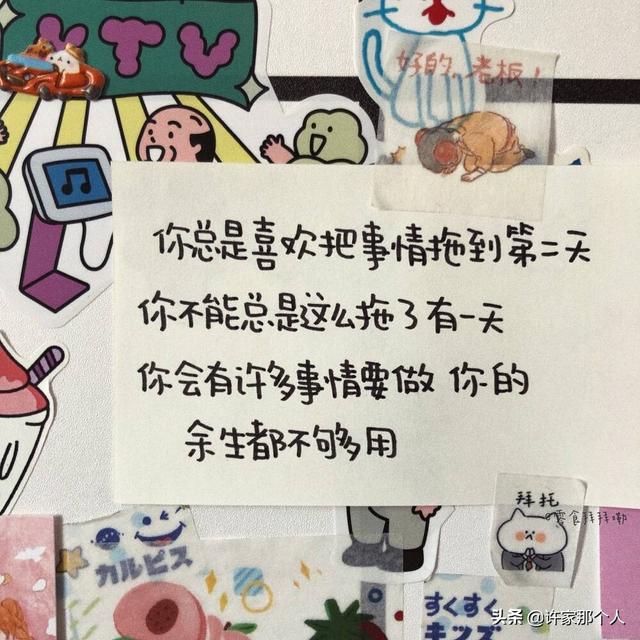 KTV
好的,老板!
你总是喜欢把事情拖到第二天
你不能总是这么拖了有一天
你会有许多事情要做 你的
余生都不够用
拜托
@零食拜拜嘞
カルピス
すくすく
キッズ
头条 @许家那个人